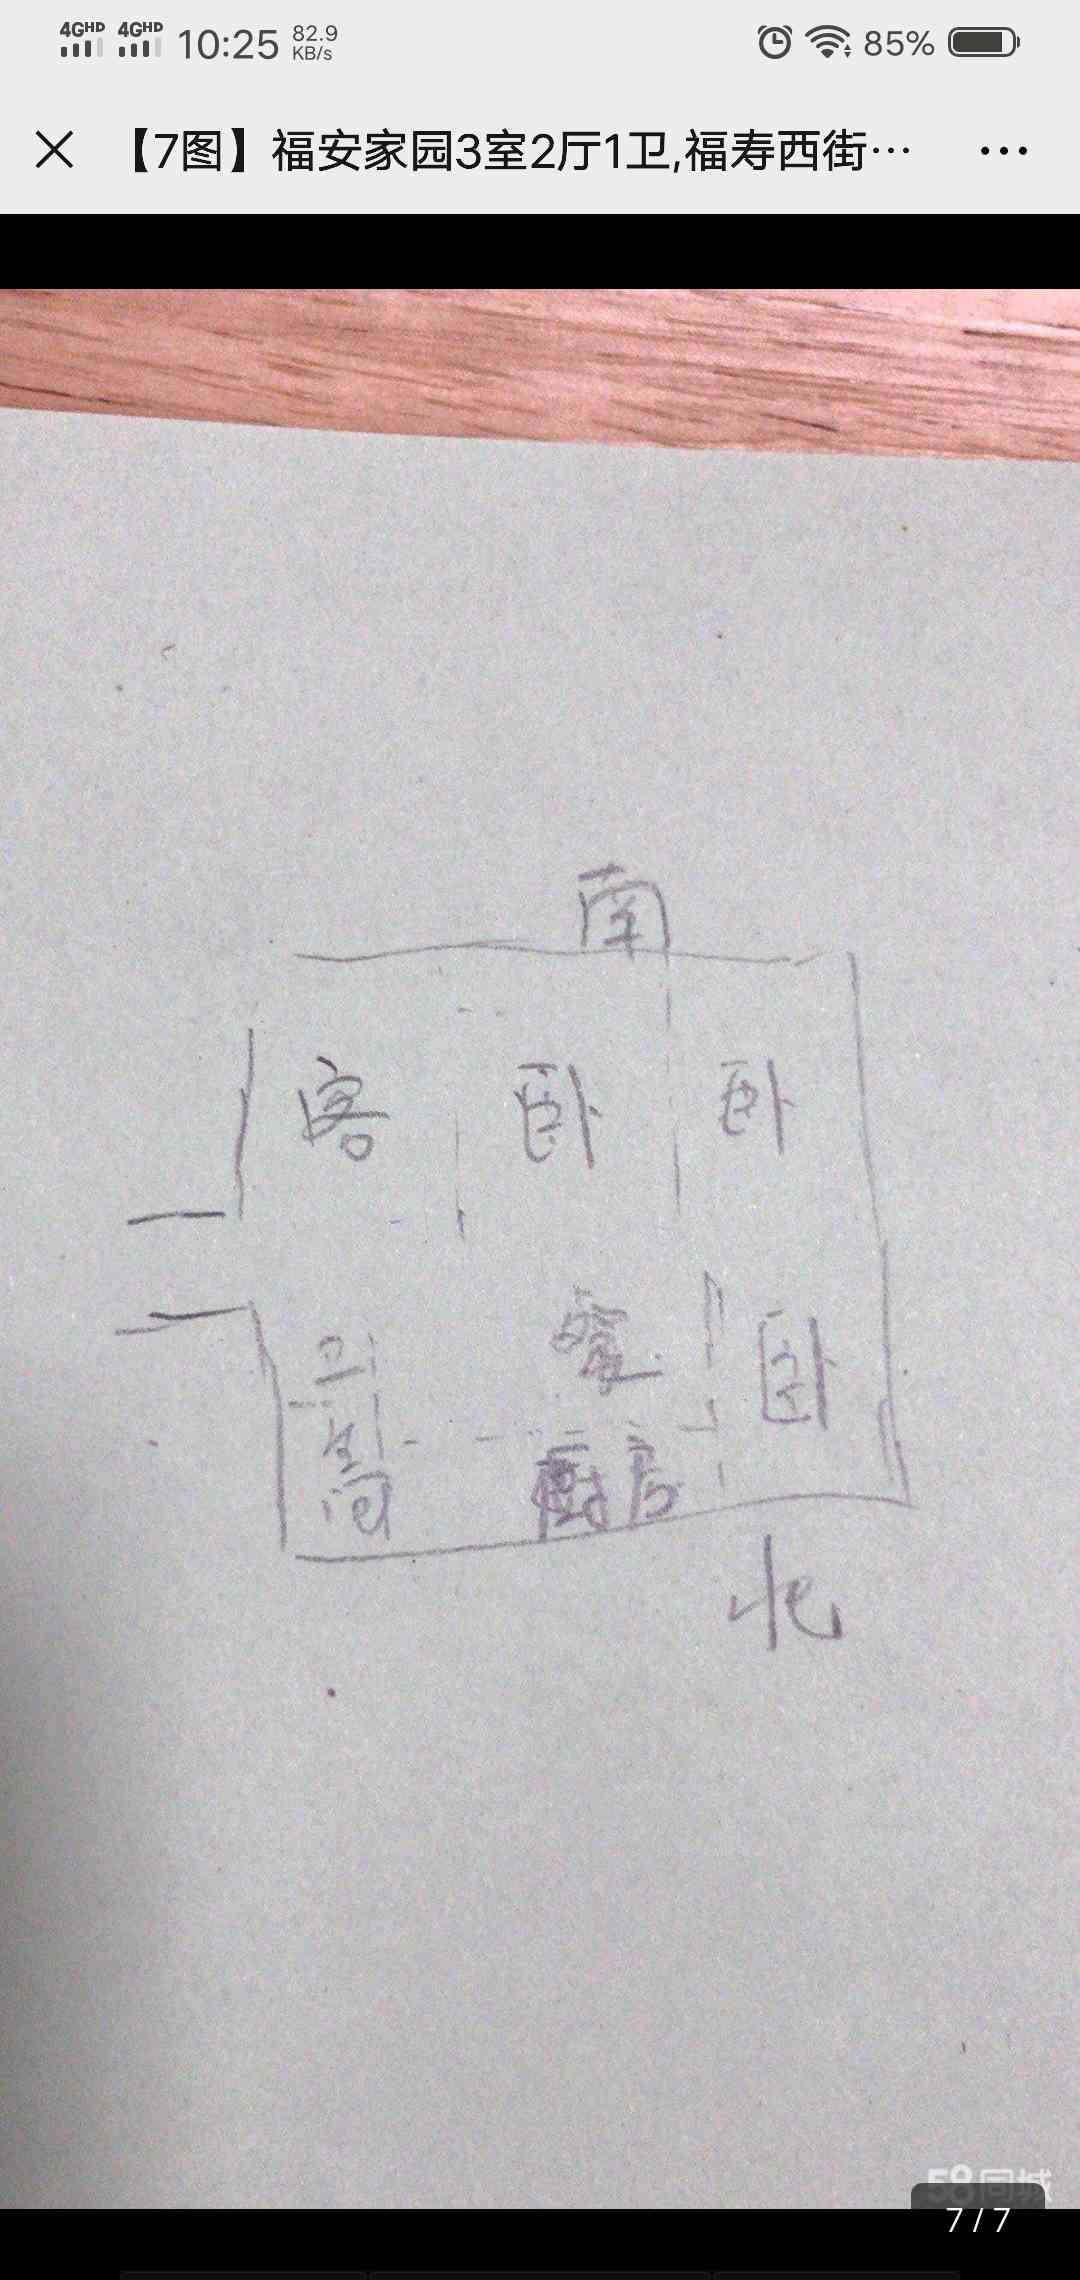 4GHD 4GHD 10:25 82.9 KB/s 85%
【7图】福安家园3室2厅1卫,福寿西街…
南
客 卧 卧
卫 餐 卧
生
间 厨房
北
58同城
7 / 7